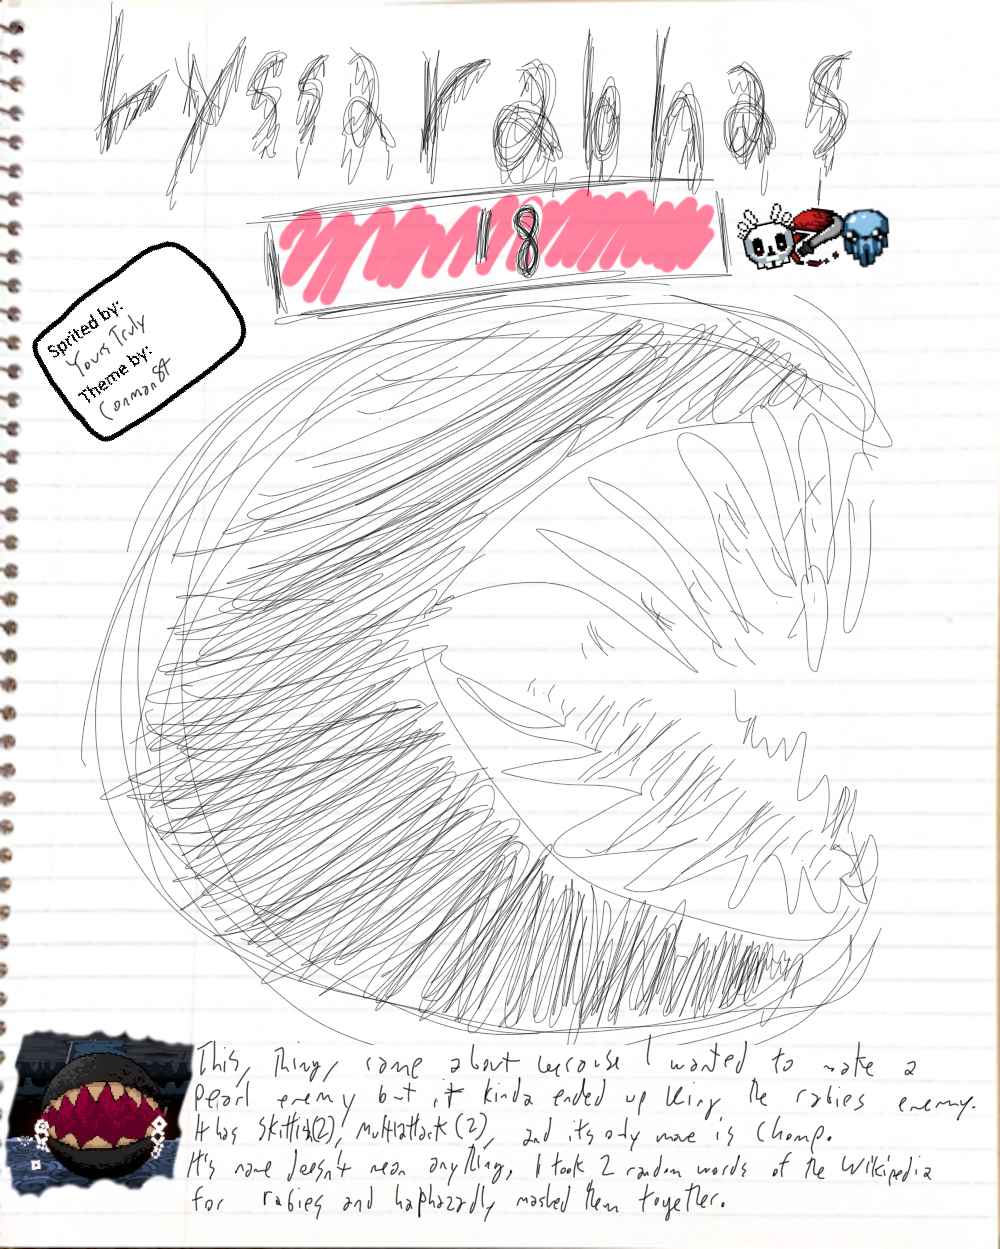 Lyssarabhas
18
Sprited by:
Yours Truly
Theme by:
Conman84
This, thing, came about because I wanted to make a
Pearl enemy but it kinda ended up being the rabies enemy.
It has Skittish(2), Multiattack (2), and its only move is Chomp.
It's name doesn't mean anything, I took 2 random words of the Wikipedia
for rabies and haphazardly mashed them together.